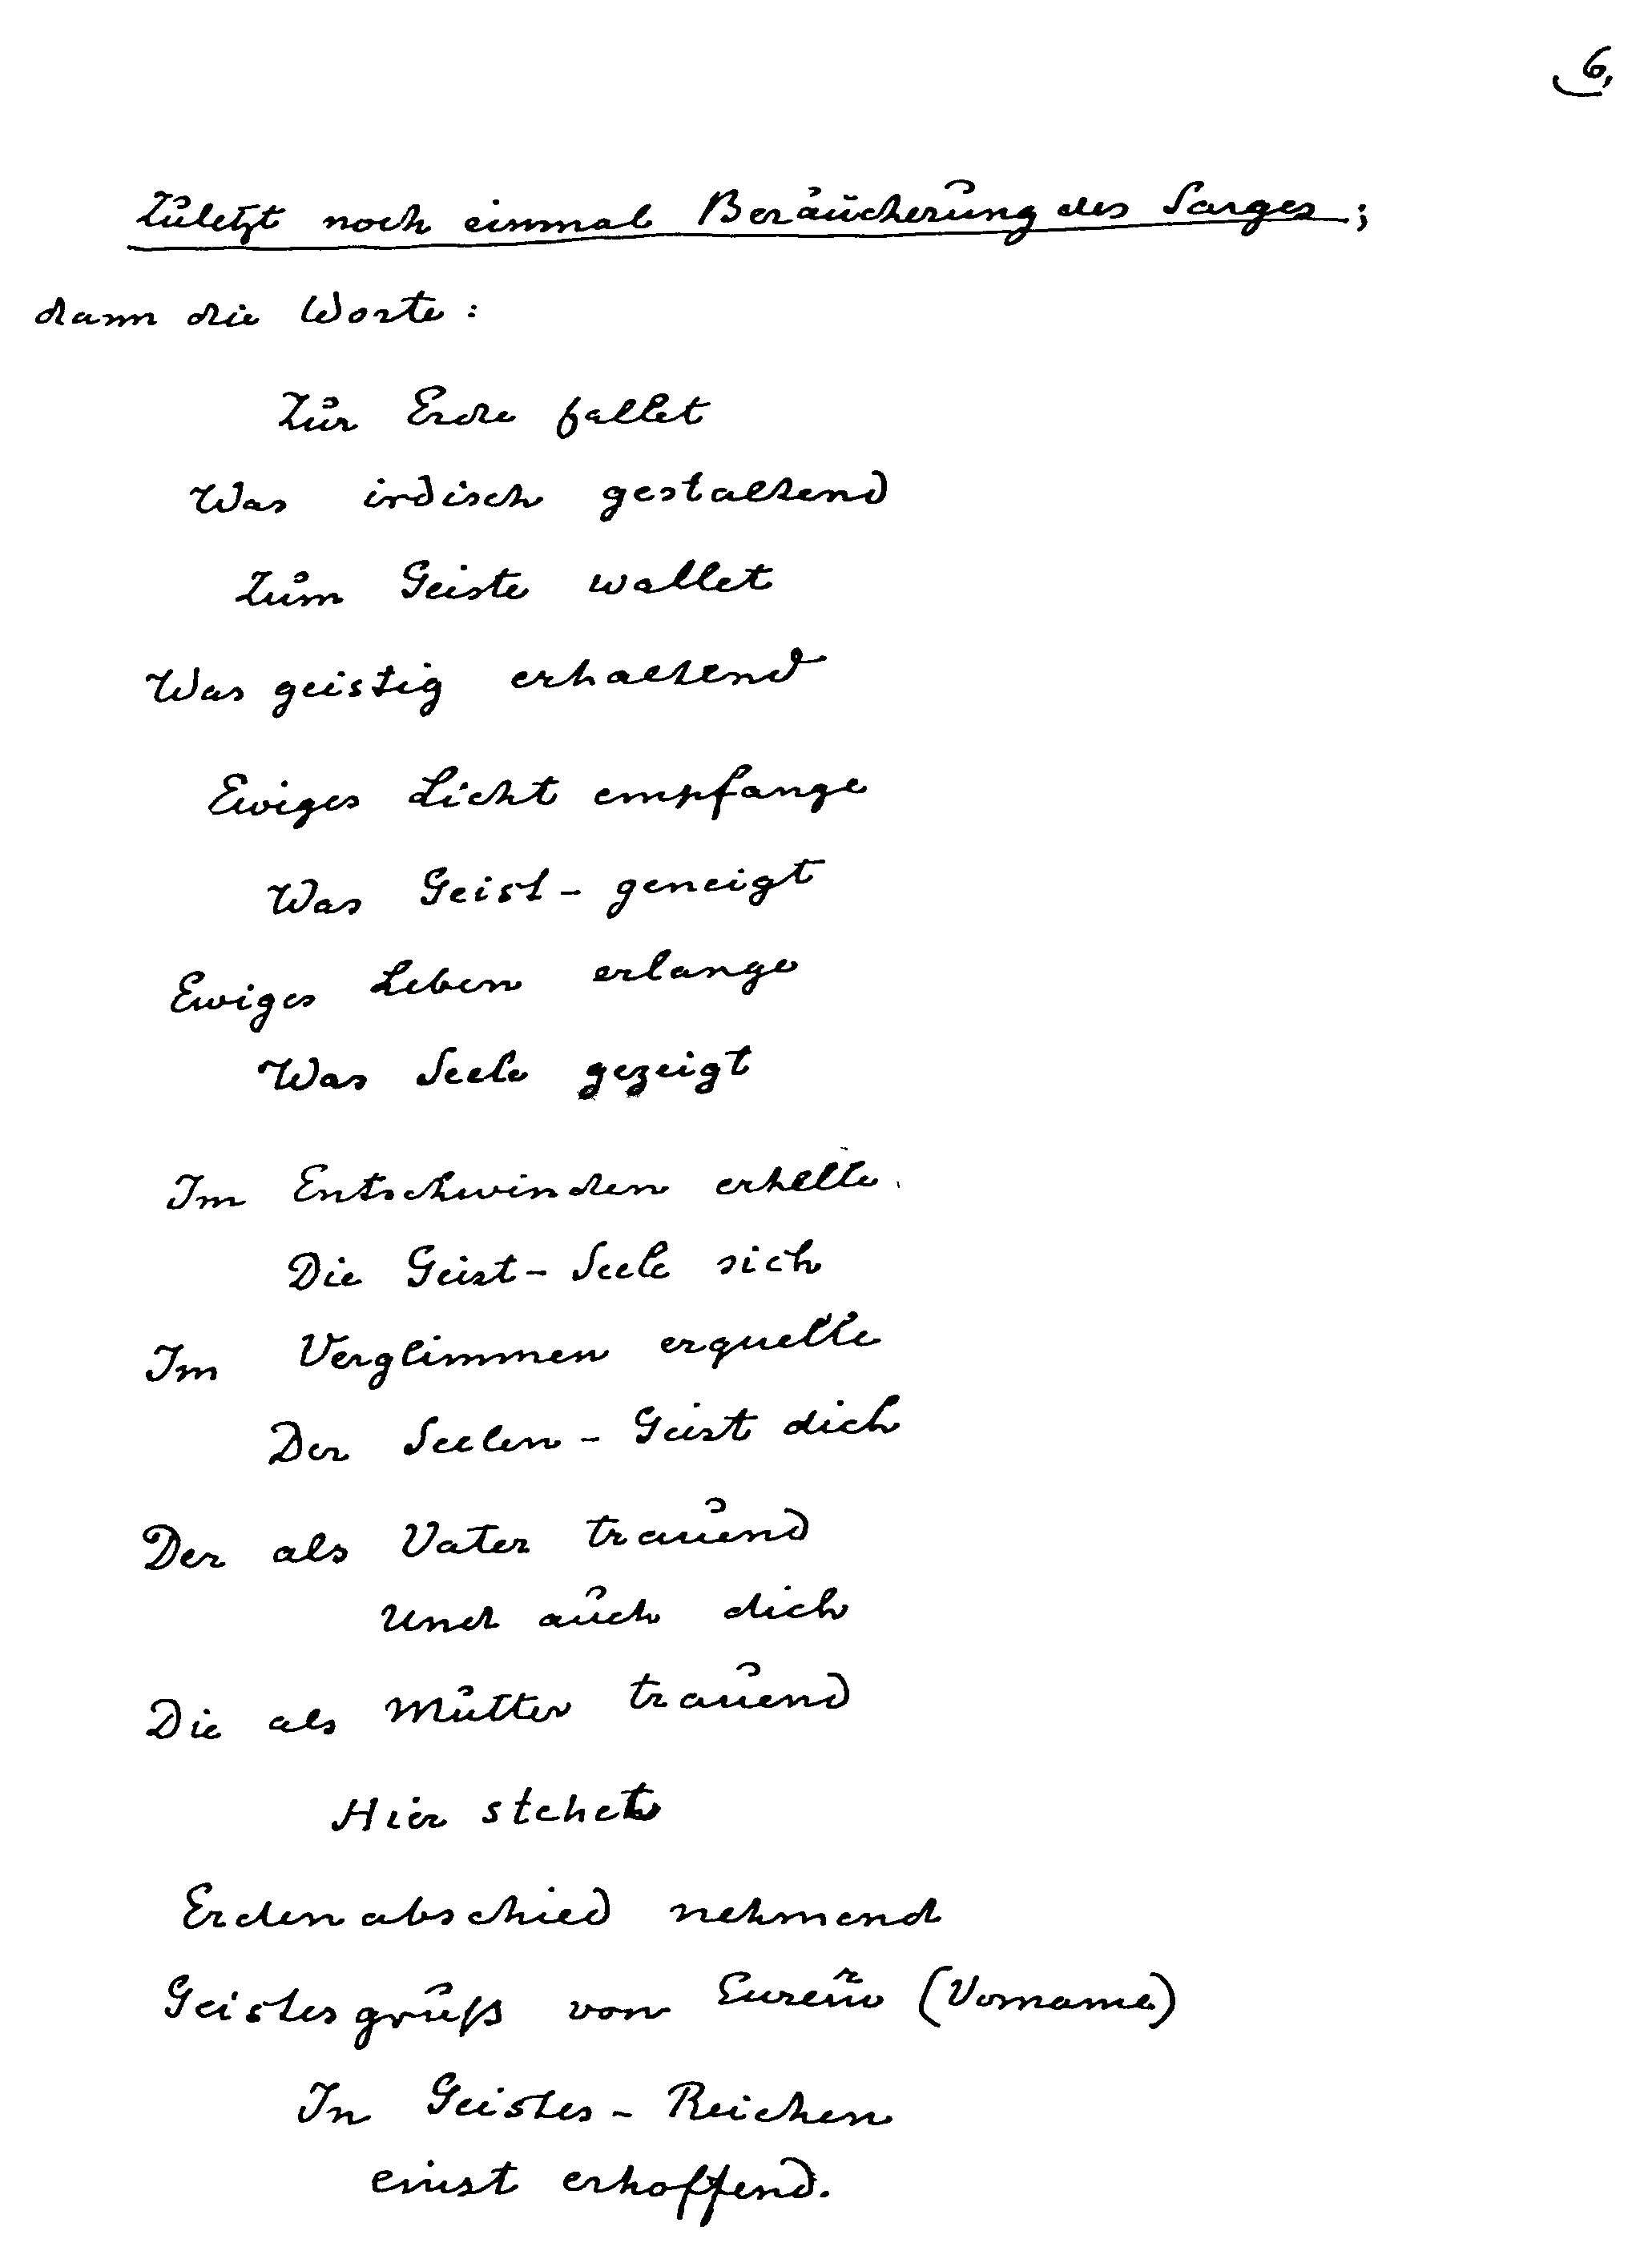 6,
Zuletzt noch einmal Beräucherung des Sarges;
dann die Worte:
Zur Erde fallet
Was irdisch gestaltend
Zum Geiste wallet
Was geistig erhaltend
Ewiges Licht empfange
Was Geist-geneigt
Ewiges Leben erlange
Was Seele gezeigt
Im Entschwinden erhelle
Die Geist-Seele sich
Im Verglimmen erquelle
Der Seelen-Geist dich
Der als Vater trauend
Und auch dich
Die als Mutter trauend
Hier stehet
Erdenabschied nehmend
Geistesgruß von (Vorname)
In Geistes-Reichen
einst erhoffend.